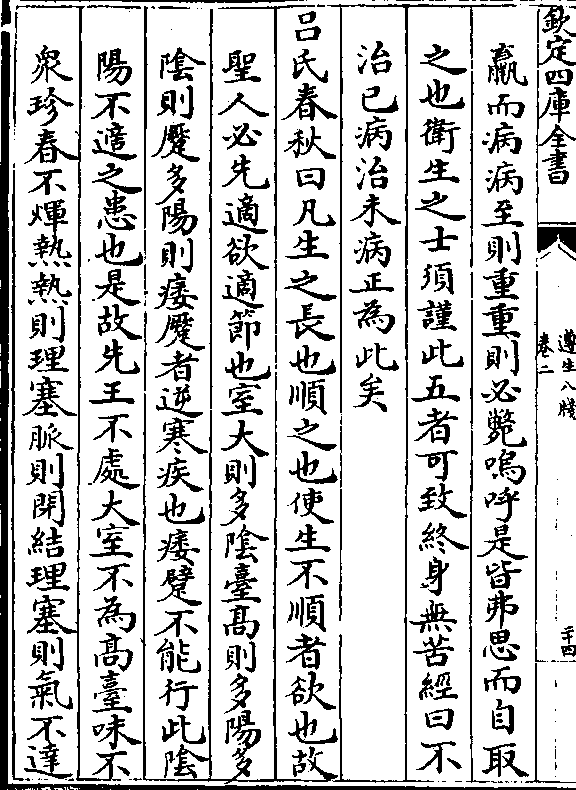 欽定四庫全書
遵生八牋
卷二
二十四
羸而病病至則重重則必斃嗚呼是皆弗思而自取
之也衛生之士須謹此五者可致終身無苦經曰不
治已病治未病正為此矣
吕氏春秋曰凡生之長也順之也使生不順者欲也故
聖人必先適欲適節也室大則多陰臺高則多陽多
陰則蹷多陽則痿蹷者逆寒疾也痿躄不能行此陰
陽不適之患也是故先王不處大室不為高臺味不
衆珍春不煇熱熱則理塞脈則閉結理塞則氣不達